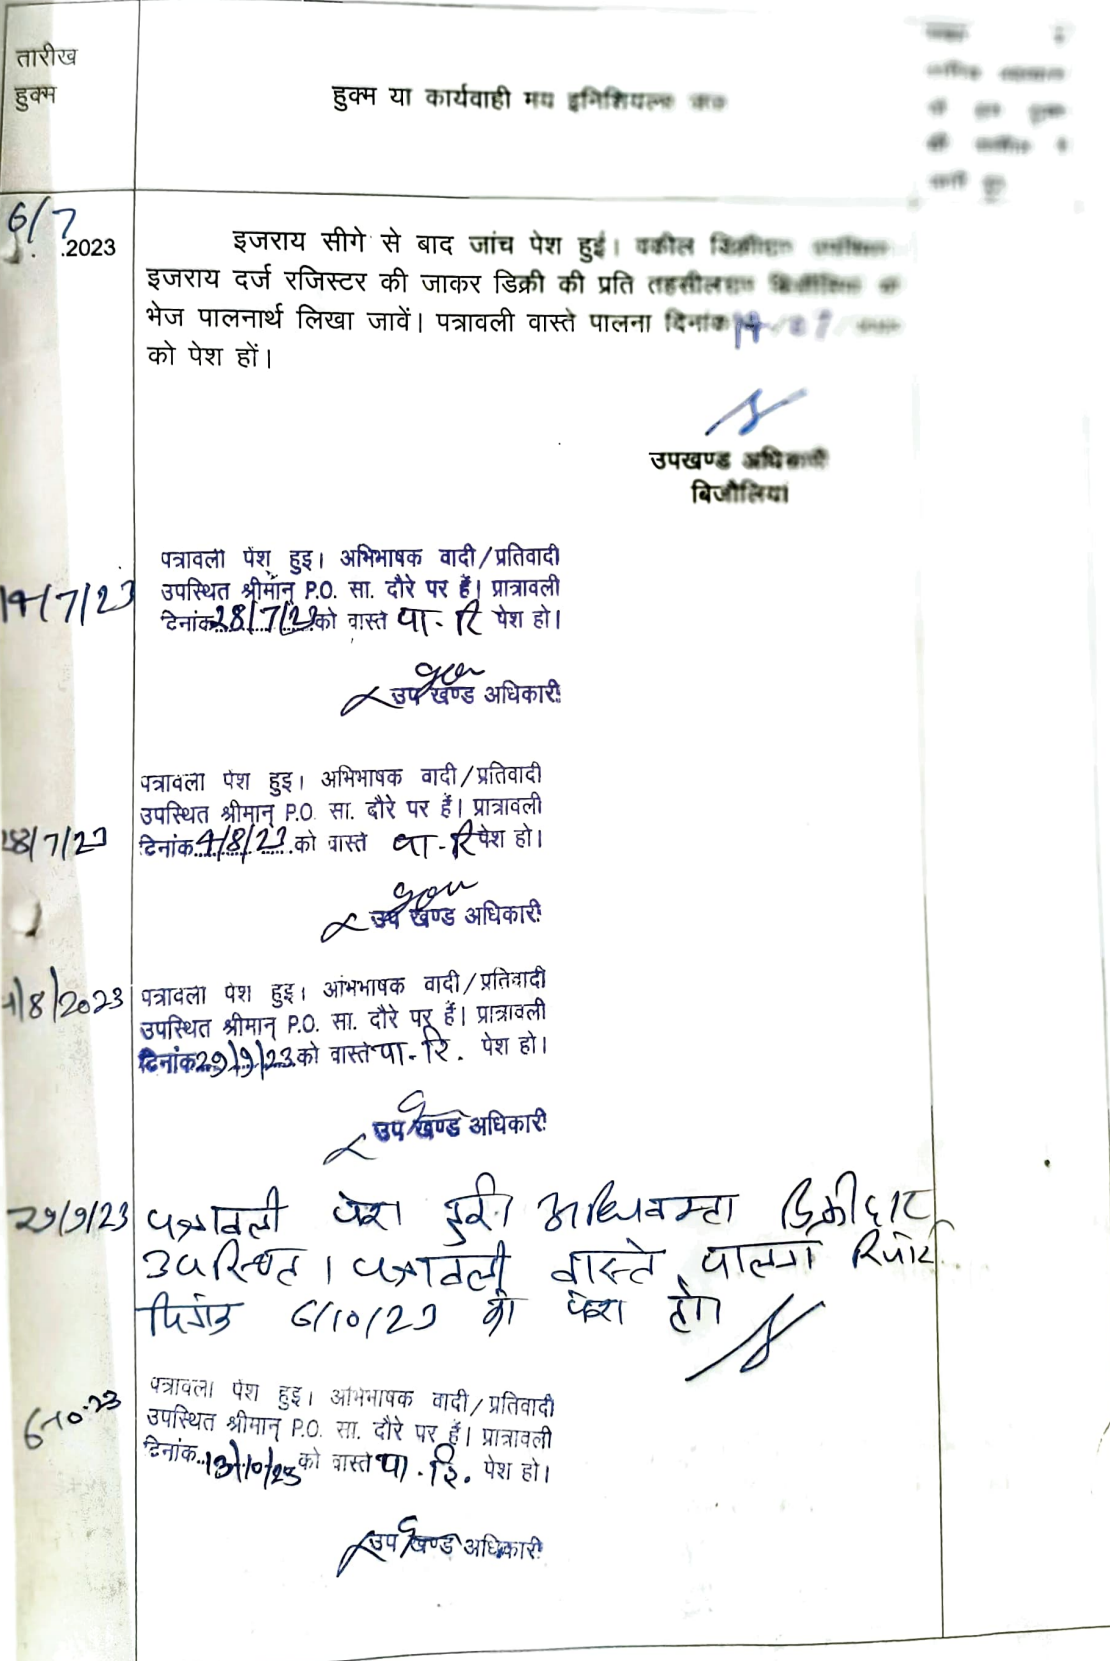 तारीख
हुक्म
हुक्म या कार्यवाही मय इनिशियल्स जज
6/7
.2023
इजराय सीगे से बाद जांच पेश हुई। वकील
इजराय दर्ज रजिस्टर की जाकर डिक्री की प्रति
भेज पालनार्थ लिखा जावें। पत्रावली वास्ते पालना दिनांक
को पेश हों।
उपखण्ड अधिकारी
बिजौलिया
14/7/23
पत्रावली पेश हुइ। अभिभाषक वादी/प्रतिवादी
उपस्थित श्रीमान् P.O. सा. दौरे पर हैं। प्रात्रावली
दिनांक 28/7/23 को वास्ते पा-रि पेश हो।
उप खण्ड अधिकारी
28/7/23
पत्रावली पेश हुइ। अभिभाषक वादी/प्रतिवादी
उपस्थित श्रीमान् P.O. सा. दौरे पर हैं। प्रात्रावली
दिनांक 4/8/23 को वास्ते पा-रि पेश हो।
उप खण्ड अधिकारी
4/8/2023
पत्रावली पेश हुइ। अभिभाषक वादी/प्रतिवादी
उपस्थित श्रीमान् P.O. सा. दौरे पर हैं। प्रात्रावली
दिनांक 29/9/23 को वास्ते पा-रि. पेश हो।
उप खण्ड अधिकारी
29/9/23
पत्रावली पेश हुई। अधिवक्ता डिक्रीदार
उपस्थित। पत्रावली वास्ते पालना रिपोर्ट
दिनांक 6/10/23 को पेश हो।
6-10-23
पत्रावली पेश हुइ। अभिभाषक वादी/प्रतिवादी
उपस्थित श्रीमान् P.O. सा. दौरे पर हैं। प्रात्रावली
दिनांक 13/10/23 को वास्ते पा.रि. पेश हो।
उप खण्ड अधिकारी